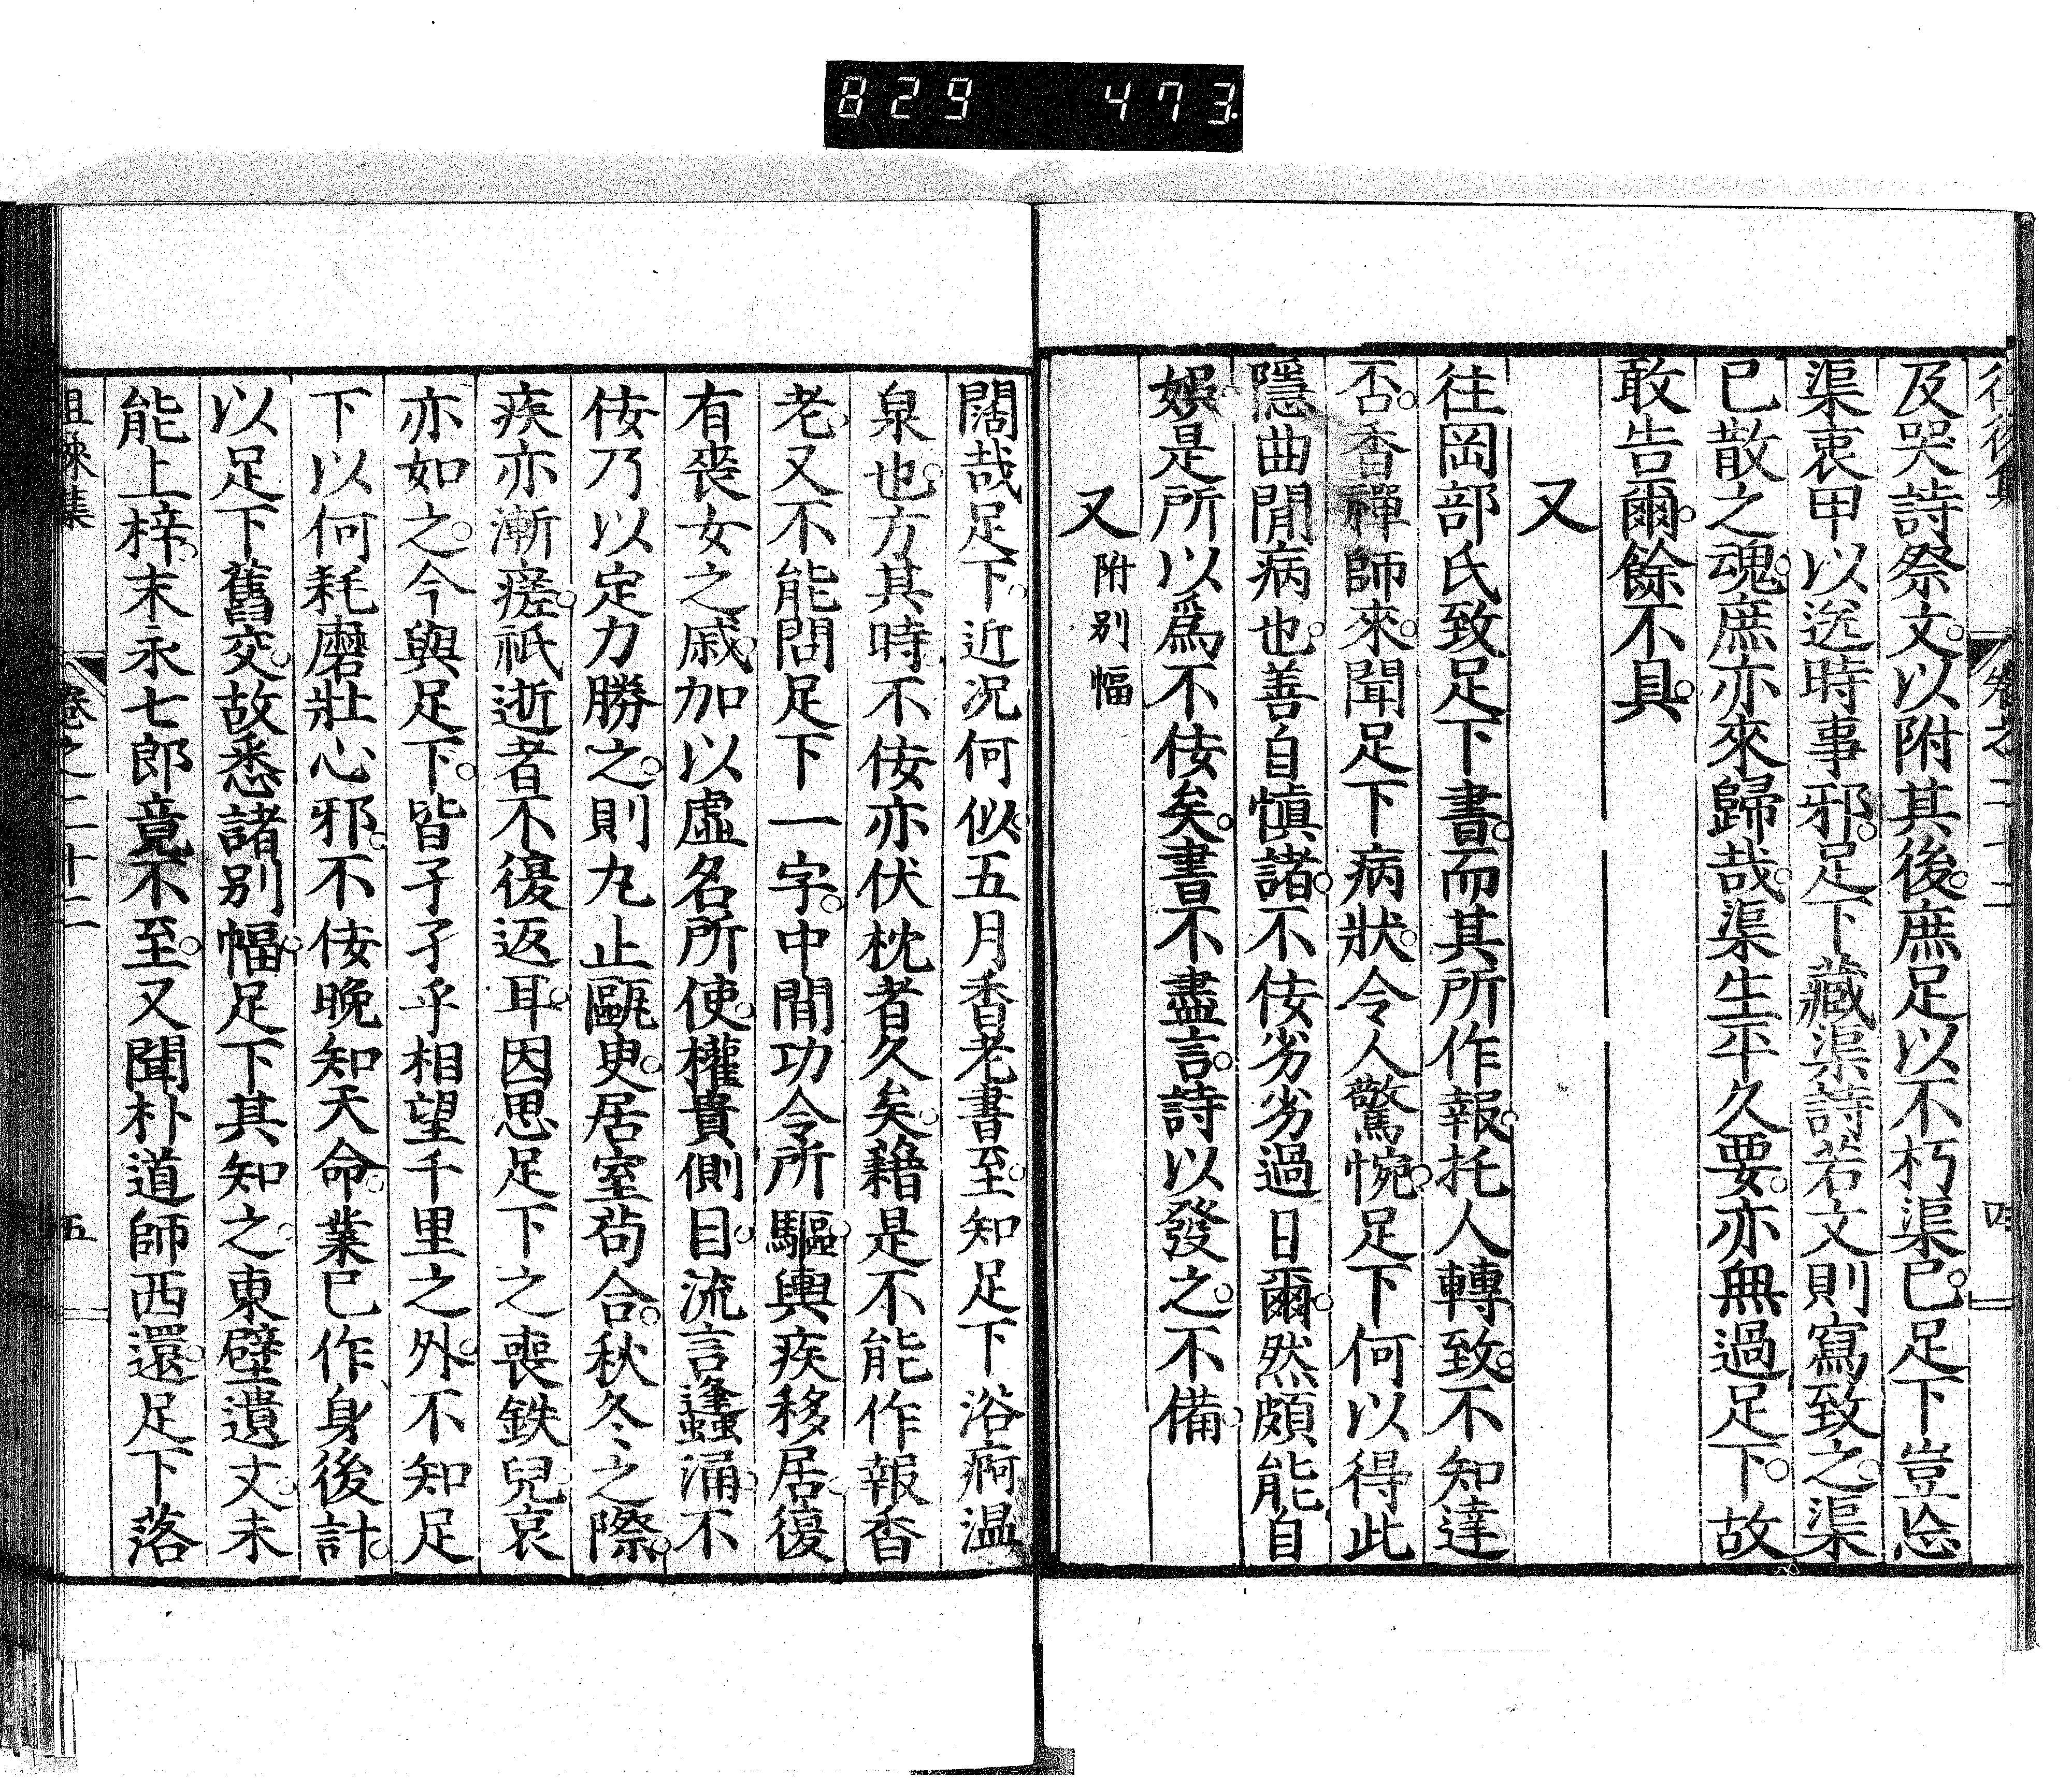 829 473
徂徠集 卷之二十二 四
及哭詩祭文。以附其後。庶足以不朽渠已。足下豈忍
渠衷甲以送時事邪。足下藏渠詩若文則寫致之。渠
已散之魂。庶亦來歸哉。渠生平久要。亦無過足下。故
敢告爾。餘不具。
又
往岡部氏致足下書。而其所作報。托人轉致。不知達
否。香禪師來。聞足下病狀。令人驚惋。足下何以得此
隱曲閒病也。善自愼諸。不佞劣劣過日爾。然頗能自
娛。是所以爲不佞矣。書不盡言。詩以發之。不備。
又 附別幅
闊哉足下。近況何似。五月香老書至。知足下浴痾温
泉也。方其時。不佞亦伏枕者久矣。藉是不能作報香
老。又不能問足下一字。中間功令所驅。輿疾移居。復
有喪女之戚。加以虛名所使。權貴側目。流言蠭涌。不
佞乃以定力勝之。則丸止甌臾。居室苟合。秋冬之際。
疾亦漸瘥。祇逝者不復返耳。因思足下之喪鉄兒。哀
亦如之。今與足下。皆孑孑乎相望千里之外。不知足
下以何耗磨壯心邪。不佞晚知天命。業已作身後計。
以足下舊交。故悉諸別幅。足下其知之。東壁遺文。未
能上梓。末永七郎竟不至。又聞朴道師西還。足下落
徂徠集 卷之二十二 五